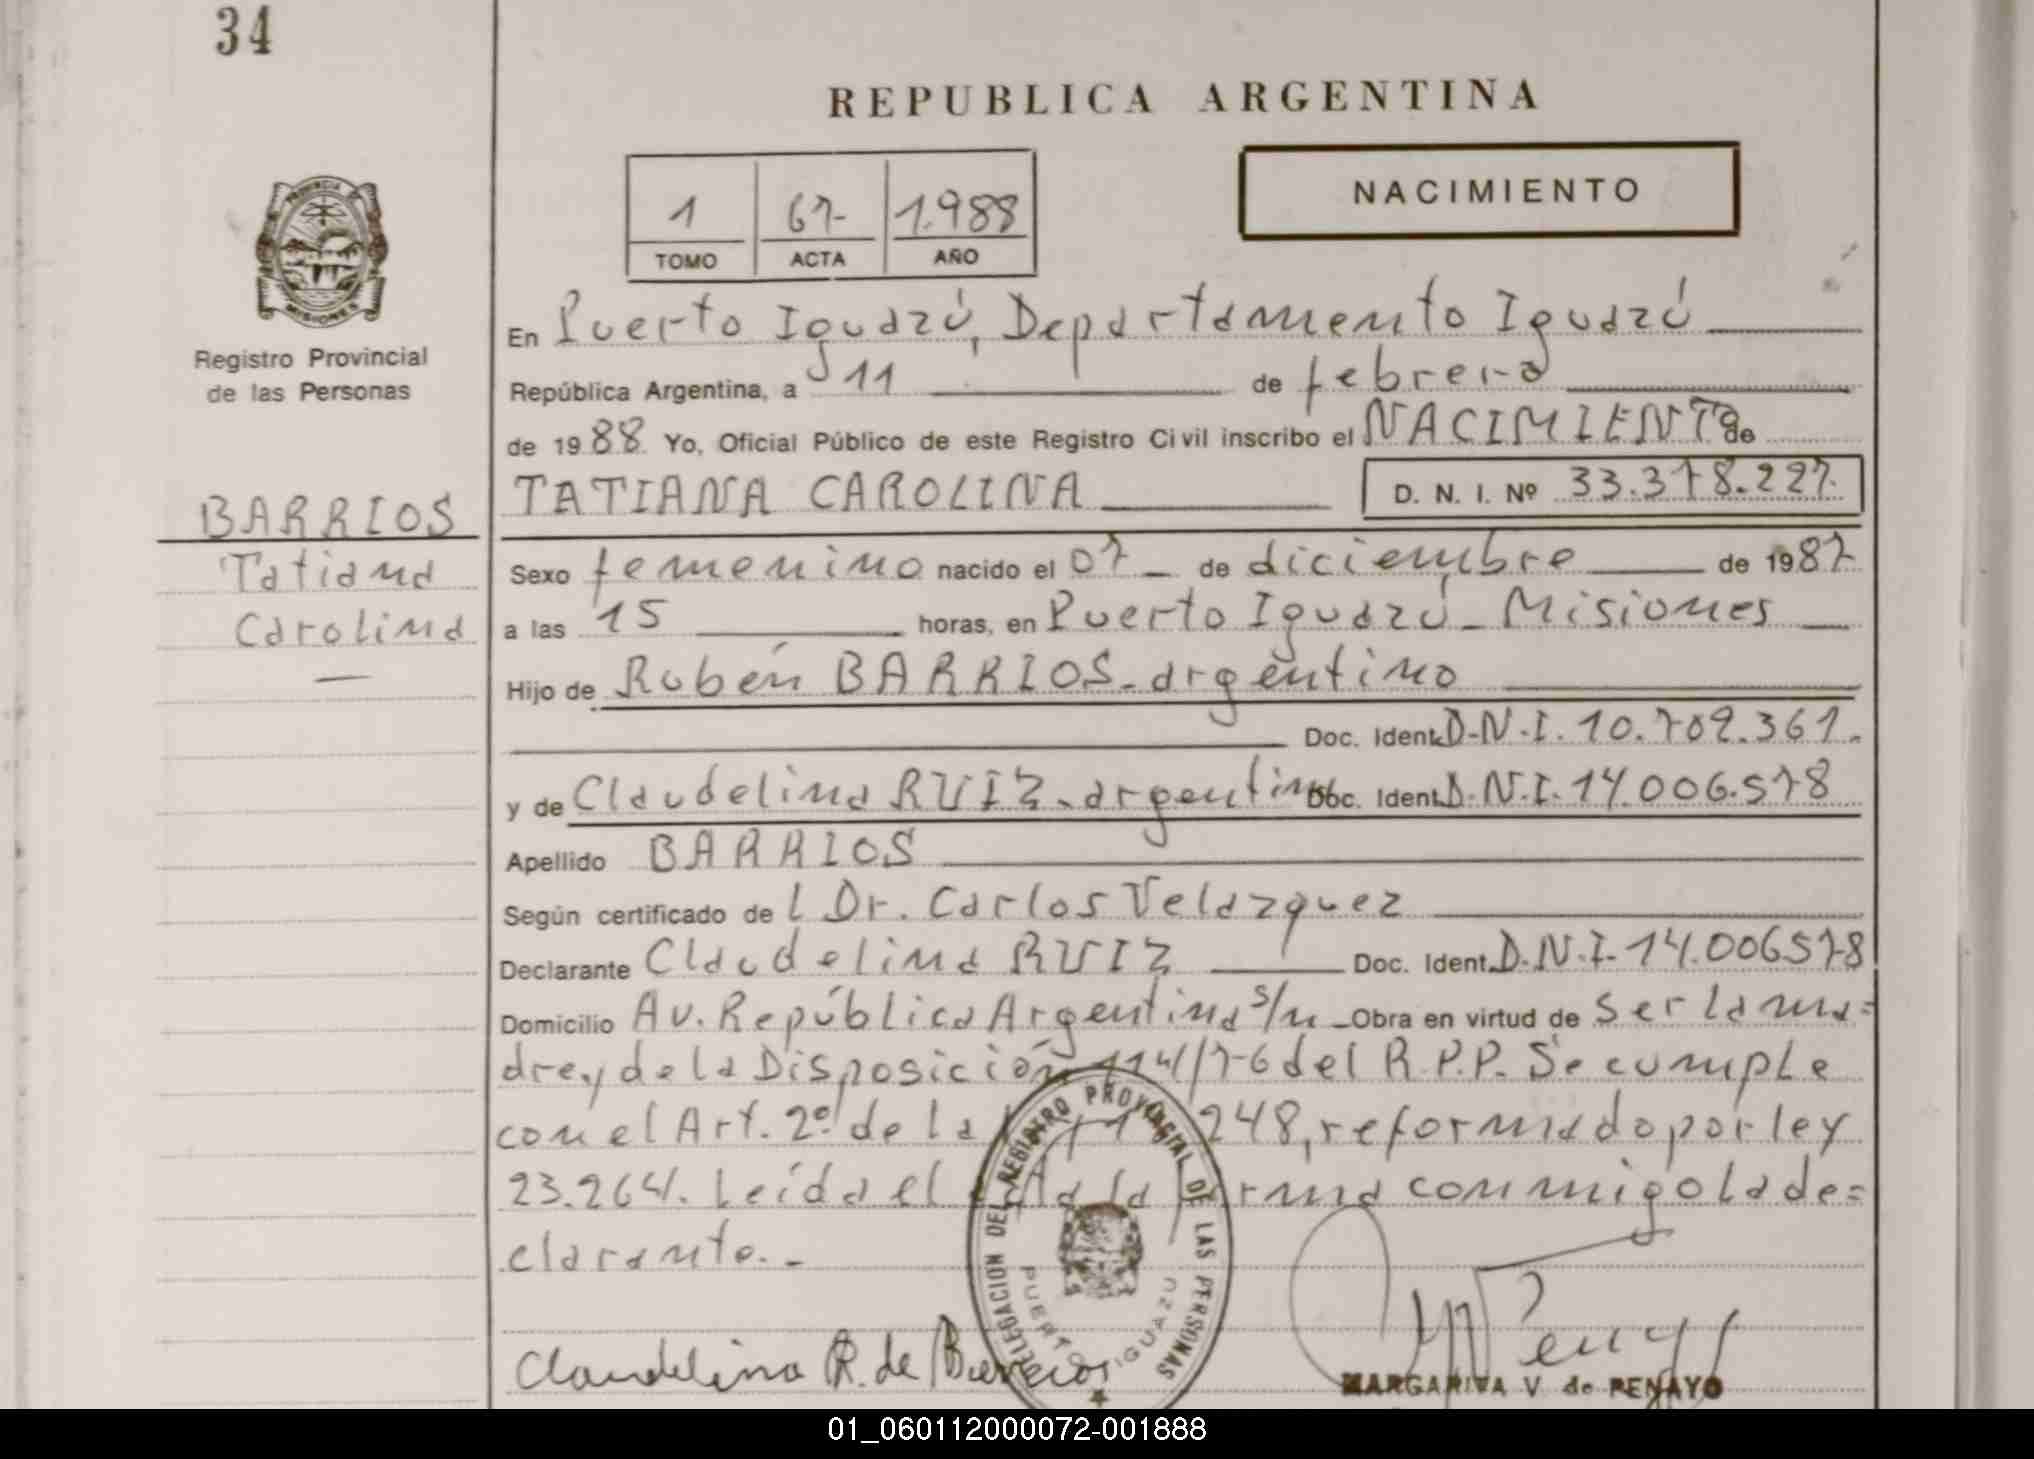 34
REPUBLICA ARGENTINA
1 67- 1.988
TOMO ACTA AÑO
NACIMIENTO
PROVINCIA DE
MISIONES
Registro Provincial
de las Personas
En Puerto Iguazú, Departamento Iguazú
República Argentina, a 11 de febrero
de 1988 Yo, Oficial Público de este Registro Civil inscribo el NACIMIENTO de
TATIANA CAROLINA D. N. I. Nº 33.378.227.
BARRIOS
Tatiana
Carolina
Sexo femenino nacido el 07 - de diciembre de 1987
a las 15 horas, en Puerto Iguazú - Misiones
Hijo de Rubén BARRIOS - argentino
Doc. Ident. D.N.I. 10.702.361.
y de Claudelina RUIZ - argentina Doc. Ident. D.N.I. 14.006.578
Apellido BARRIOS
Según certificado de l Dr. Carlos Velazquez
Declarante Claudelina RUIZ Doc. Ident. D.N.I. 14.006578
Domicilio Av. República Argentina s/n - Obra en virtud de ser la ma=
dre y de la Disposición 114/76 del R.P.P. Se cumple
con el Art. 2º de la 248, reformado por ley
23.264. Leída el acta la firma conmigo la de=
clarante.-
Claudelina R. de Barrios
DELEGACION DEL REGISTRO PROVINCIAL DE LAS PERSONAS
PUERTO IGUAZU
MARGARITA V. de PENAYO
01_060112000072-001888